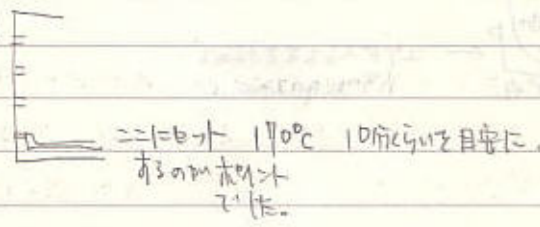 ここにセット 170℃ 10分くらいを目安に。
するのがポイント
でした。